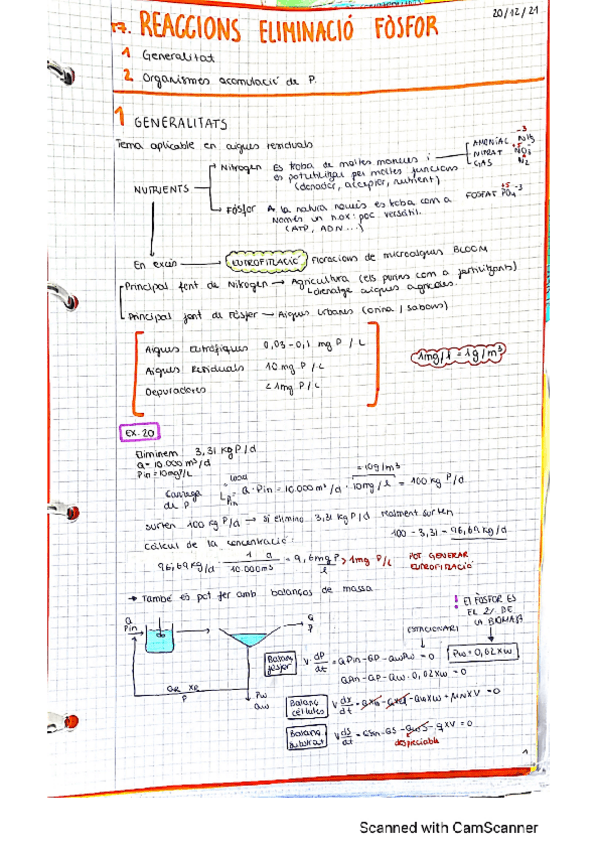 T7. REACCIONS ELIMINACIÓ FÒSFOR
20/12/21
1 Generalitat
2 Organismes acomulació de P.
1 GENERALITATS
Tema aplicable en aigues residuals
NUTRIENTS
Nitrogen Es troba de moltes maneres i
es potutilitzat per moltes funcions
(donador, acceptor, nutrient)
AMONIAC NH3 -3
NITRAT NO3 +5
GAS N2
Fòsfor A la natura només es troba com a
Només un nox: poc versàtil.
(ATP, ADN...)
FOSFAT PO4 -3 +5
En excés EUTROFITZACIÓ Floracions de microalgues BLOOM
Principal font de Nitrogen → Agricultura (els purins com a fertilitzants)
drenatge aigues agrícoles.
Principal font de Fòsfor → Aigues Urbanes (orina / sabons)
Aigues Eutròfiques 0,03-0,1 mg P / L
Aigues Residuals 10 mg P / L
Depuradores <1mg P / L
1mg/l = 1g/m³
EX. 20
Eliminem 3,31 kg P/d
Q = 10.000 m³/d
Pin = 10mgP/L
Carrega de P
load
LPin = Q · Pin = 10.000 m³/d · 10mg/l = 100 kg P/d
= 10g/m³
Surten 100 kg P/d → si elimino 3,31 kgP/d realment surten
100 - 3,31 = 96,69 kg/d
Càlcul de la concentració:
96,69 kg/d · 1 d / 10.000m³ = 9,6 mg P / l > 1mg P/L POT GENERAR
EUTROFITZACIÓ
→ També es pot fer amb balanços de massa
! El FÒSFOR ES
EL 2% DE
LA BIOMASSA
Q
Pin
Q
P
QR XR
P
Pw
Qw
ESTACIONARI
Pw = 0,02Xw
Balanç fòsfor V dP/dt = QPin - QP - QwPw = 0
QPin - QP - Qw · 0,02Xw = 0
Balanç cèl·lules
Balanç substrat
despreciable
1
Scanned with CamScanner